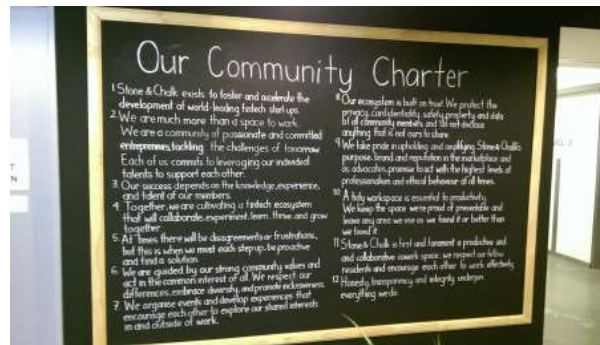 Our Community Charter
1 Stone & Chalk exists to foster and accelerate the
development of world-leading fintech start-ups.
2. We are much more than a space to work.
We are a community of passionate and committed
entrepreneurs, tackling the challenges of tomorrow
Each of us commits to leveraging our individual
talents to support each other.
3. Our success depends on the knowledge, experience,
and talent of our members.
4 Together, we are cultivating a fintech ecosystem
that will collaborate, experiment, learn, thrive and grow
together
5. At times there will be disagreements or frustrations,
but this is when we must each step up, be proactive
and find a solution.
6. We are guided by our strong community values and
act in the common interest of all. We respect our
differences, embrace diversity, and promote inclusiveness.
7 We organise events and develop experiences that
encourage each other to explore our shared interests
in and outside of work.
8 Our ecosystem is built on trust. We protect the
privacy, confidentiality, safety, property and data
of all community members and do not disclose
anything that is not ours to share
9 We take pride in upholding and amplifying Stone & Chalk's
purpose, brand and reputation in the marketplace and
as advocates, promise to act with the highest levels of
professionalism and ethical behaviour at all times.
10 A tidy workspace is essential to productivity.
We keep the space we're proud of presentable and
leave any area we use as we found it or better than
we found it
11 Stone & Chalk is first and foremost a productive and
and collaborative cowork space, we respect our fellow
residents and encourage each other to work effectively
12 Honesty, transparency and integrity underpin
everything we do